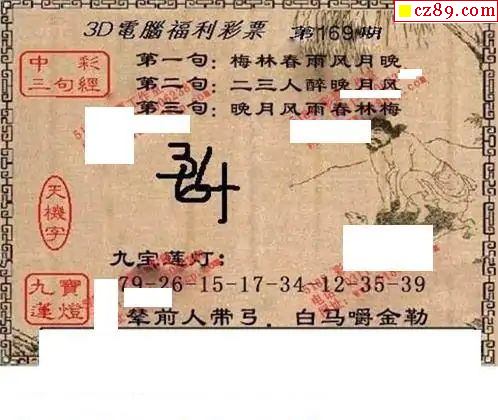 cz89.com
3D電腦福利彩票 第169期
中彩
三句經
第一句：梅林春雨风月晚
第二句：二三人醉晚月风
第三句：晚月风雨春林梅
天機字
九宝莲灯：
九寶
蓮燈
79-26-15-17-34，12-35-39
辇前人带弓．白马嚼金勒